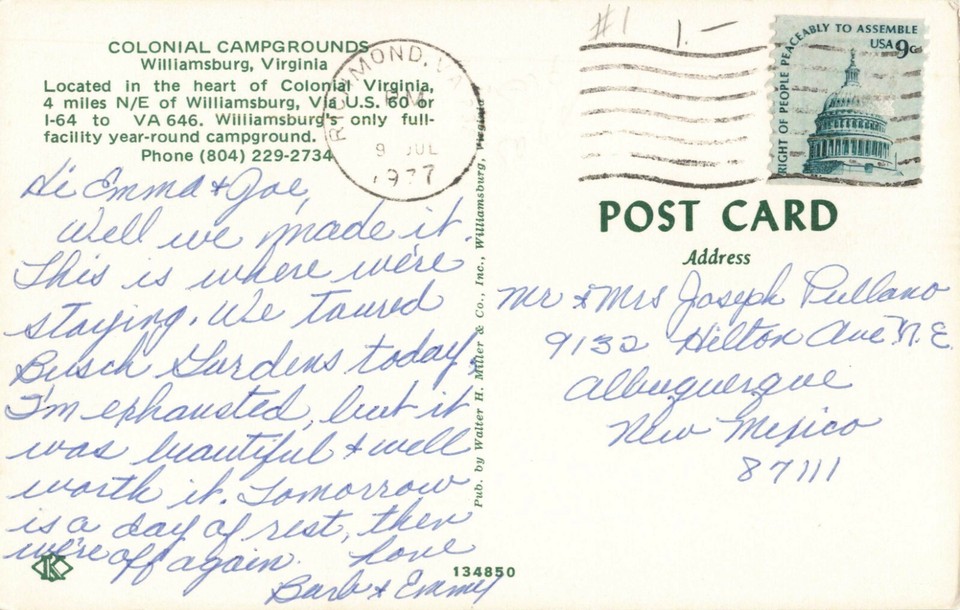 #1 1.—
COLONIAL CAMPGROUNDS
Williamsburg, Virginia
Located in the heart of Colonial Virginia,
4 miles N/E of Williamsburg, Via U.S. 60 or
I-64 to VA 646. Williamsburg's only full-
facility year-round campground.
Phone (804) 229-2734
RICHMOND, VA
PM
9 JUL
1977
RIGHT OF PEOPLE PEACEABLY TO ASSEMBLE
USA 9c
Hi Emma & Joe,
Well we made it.
This is where we're
staying. We toured
Busch Gardens today,
I'm exhausted, but it
was beautiful & well
worth it. Tomorrow
is a day of rest, then
we're off again. Love
Barb & Emmy
K
Pub. by Walter H. Miller & Co., Inc., Williamsburg, Virginia
134850
POST CARD
Address
Mr & Mrs Joseph Pullano
9132 Hilton Ave N.E.
Albuquerque
New Mexico
87111